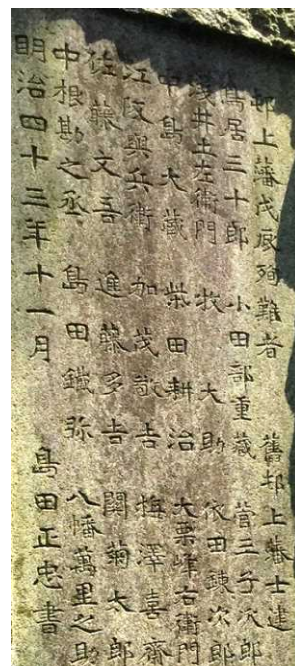 邨上藩戊辰殉難者 舊邨上藩士建
鳥居三十郎 小田部重藏 菅三子次郎
淺井土左衛門 牧大助 依田錬次郎
中島大藏 柴田耕治 大栗峰右衛門
江坂與兵衛 加茂敬吉 梅澤喜齋
佐藤文吾 進藤多吉 関菊太郎
中根勘之丞 島田鐵弥 八幡萬里之助
明治四十三年十一月 島田正忠書